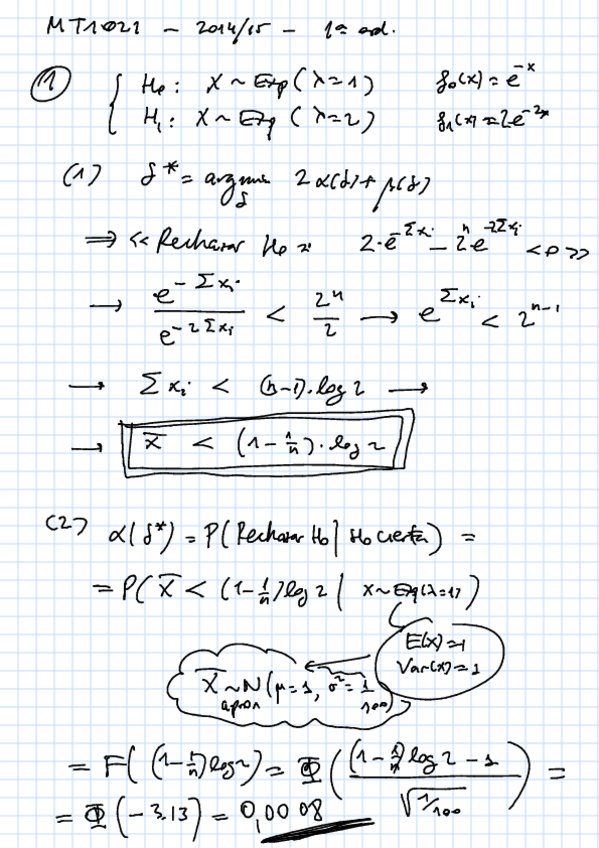 MT1022 - 2014/15 - 1ª ord.
① { H₀: X ~ Exp(λ=1) f₀(x) = e^{-x}
H₁: X ~ Exp(λ=2) f₁(x) = 2e^{-2x}
(1) δ* = argmin_δ 2α(δ) + β(δ)
⇒ << Rechazar H₀ si 2·e^{-Σxᵢ} - 2ⁿe^{-2Σxᵢ} < 0 >>
→ e^{-Σxᵢ} / e^{-2Σxᵢ} < 2ⁿ/2 → e^{Σxᵢ} < 2^{n-1}
→ Σxᵢ < (n-1)·log 2 →
→ x̄ < (1 - 1/n)·log 2
(2) α(δ*) = P(Rechazar H₀ | H₀ cierta) =
= P(X̄ < (1 - 1/n) log 2 | X ~ Exp(λ=1))
E(X) = 1
Var(X) = 1
X̄ ~ N(μ = 1, σ² = 1/100)
aprox
= F((1 - 1/n) log 2) = Φ(((1 - 1/n) log 2 - 1) / √(1/100)) =
= Φ(-3.13) = 0,0008